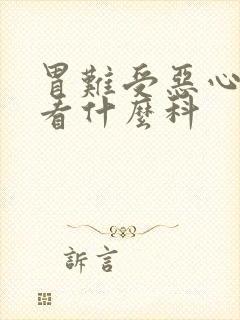 胃難受惡心
看什麼科
訴言